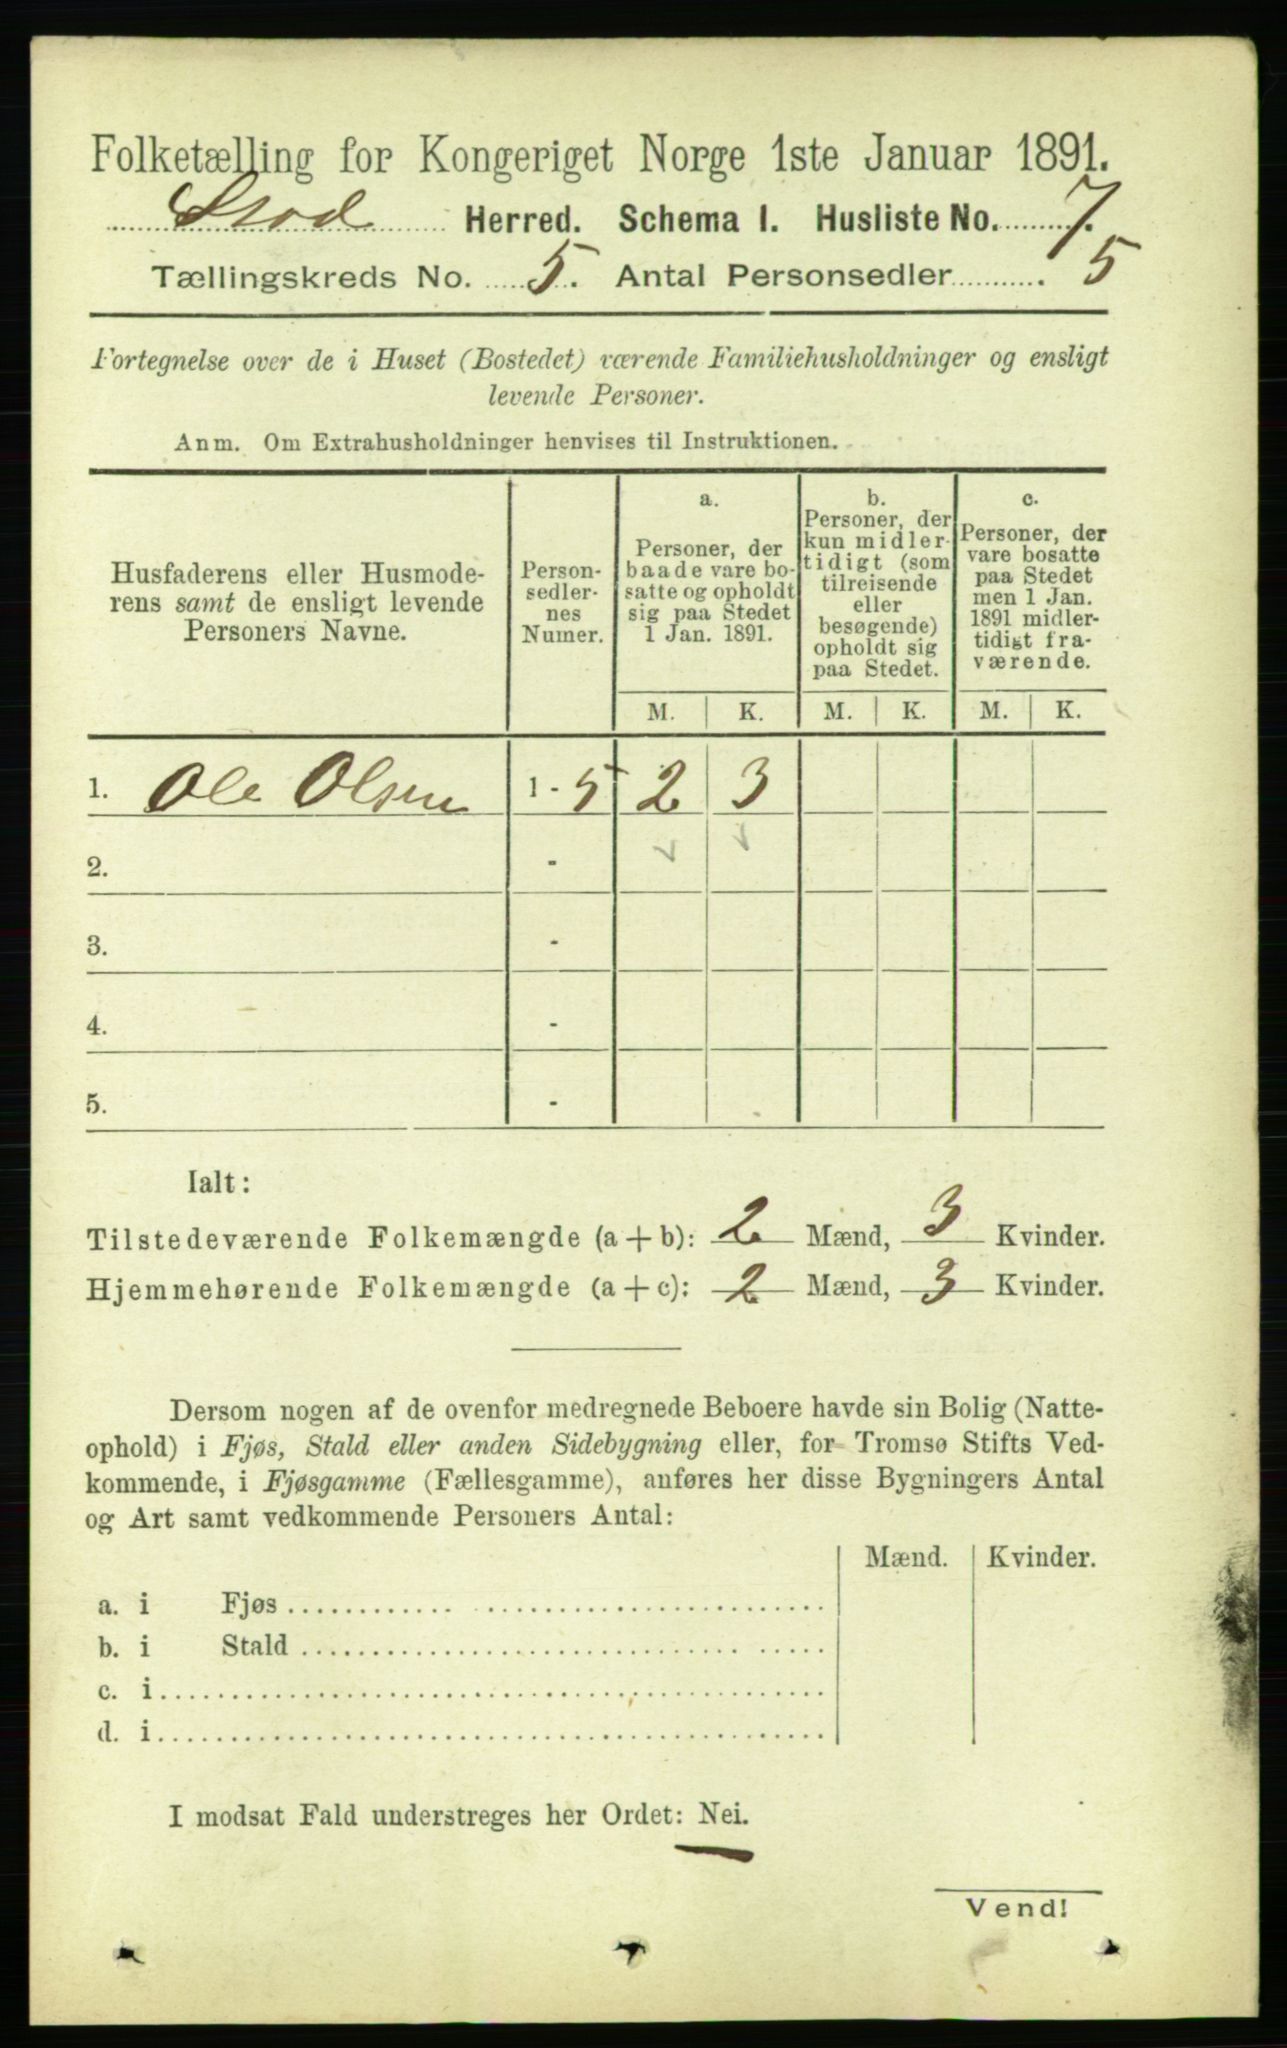 Folketælling for Kongeriget Norge 1ste Januar 1891.
Herred. Schema I. Husliste No. 7.
Tællingskreds No. 5. Antal Personsedler 5
Fortegnelse over de i Huset (Bostedet) værende Familiehusholdninger og ensligt
levende Personer.
Anm. Om Extrahusholdninger henvises til Instruktionen.
Husfaderens eller Husmode-
rens samt de ensligt levende
Personers Navne.
Person-
sedler-
nes
Numer.
a.
Personer, der
baade vare bo-
satte og opholdt
sig paa Stedet
1 Jan. 1891.
b.
Personer, der
kun midler-
tidigt (som
tilreisende
eller
besøgende)
opholdt sig
paa Stedet.
c.
Personer, der
vare bosatte
paa Stedet
men 1 Jan.
1891 midler-
tidigt fra-
værende.
M. K. M. K. M. K.
1. Ole Olsen 1 - 5 2 3
2. -
3. -
4. -
5. -
Ialt:
Tilstedeværende Folkemængde (a + b): 2 Mænd, 3 Kvinder.
Hjemmehørende Folkemængde (a + c): 2 Mænd, 3 Kvinder.
Dersom nogen af de ovenfor medregnede Beboere havde sin Bolig (Natte-
ophold) i Fjøs, Stald eller anden Sidebygning eller, for Tromsø Stifts Ved-
kommende, i Fjøsgamme (Fællesgamme), anføres her disse Bygningers Antal
og Art samt vedkommende Personers Antal:
Mænd. Kvinder.
a. i Fjøs
b. i Stald
c. i
d. i
I modsat Fald understreges her Ordet: Nei.
Vend!